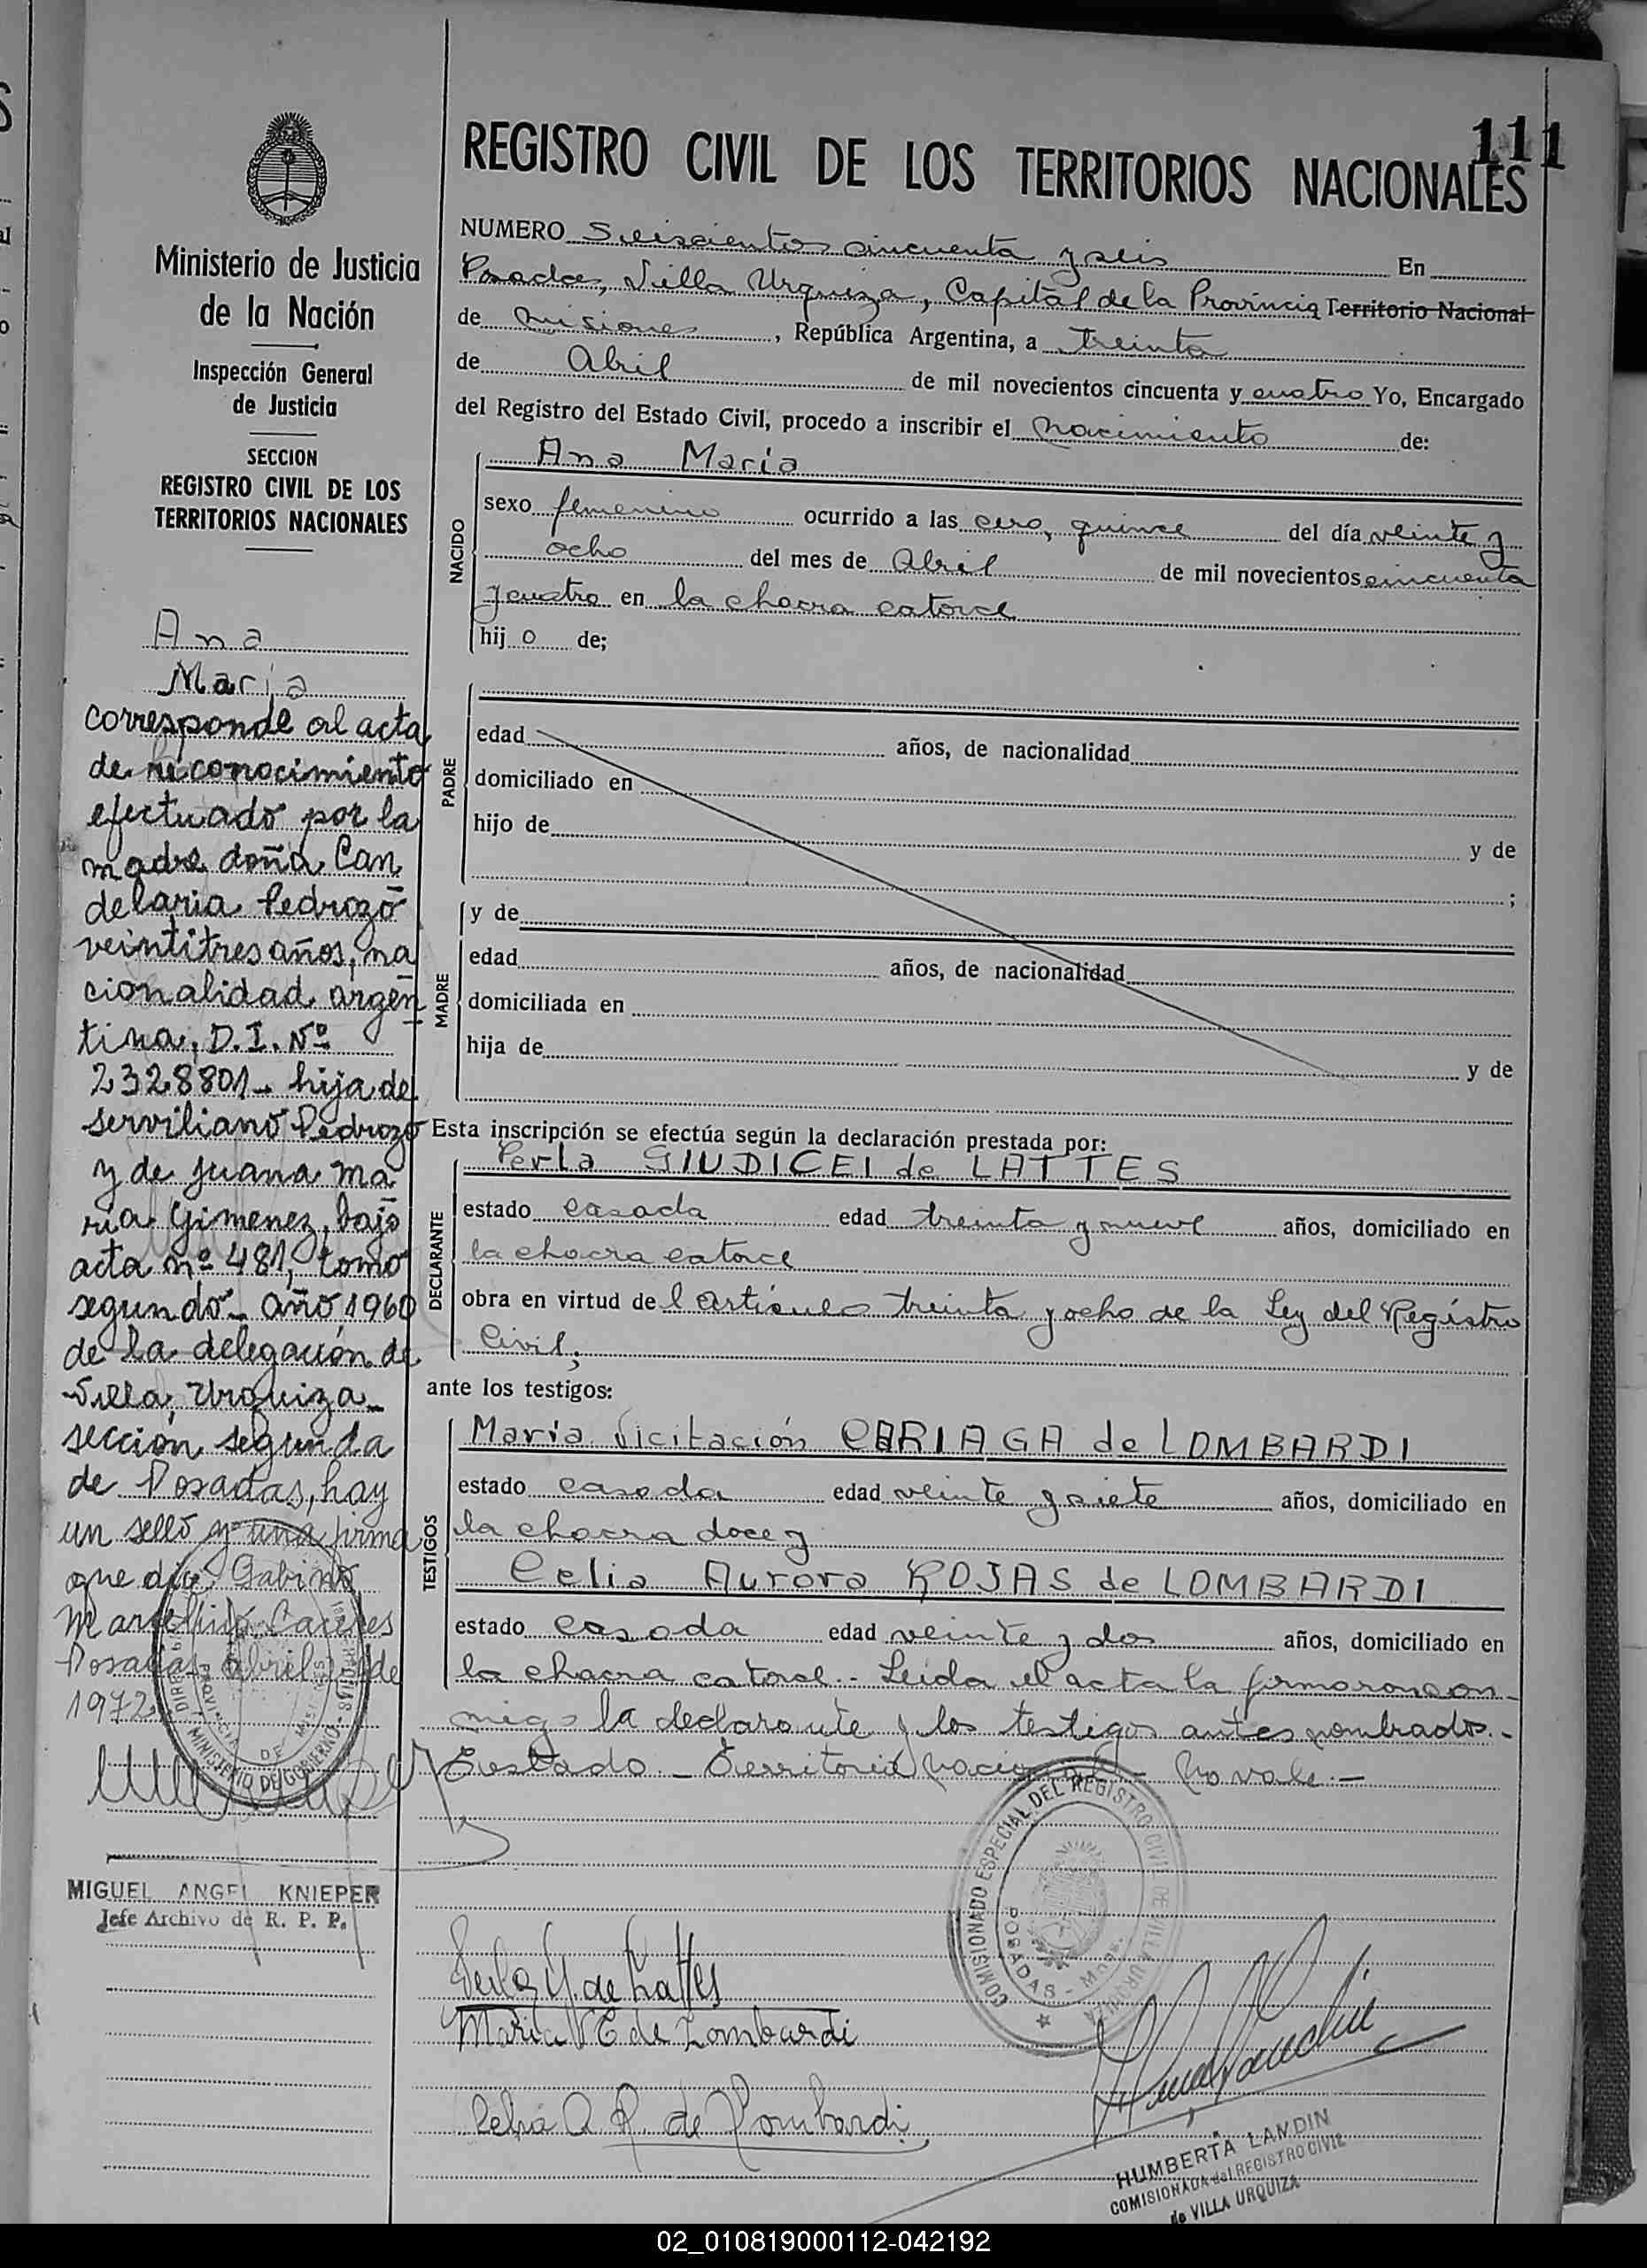 111
REGISTRO CIVIL DE LOS TERRITORIOS NACIONALES
Ministerio de Justicia
de la Nación
Inspección General
de Justicia
SECCION
REGISTRO CIVIL DE LOS
TERRITORIOS NACIONALES
Ana
Maria
corresponde al acta
de reconocimiento
efectuado por la
madre doña Can
delaria Pedrozo
veintitres años, na
cionalidad argen
tina, D.I. Nº
2328801- hija de
serviliano Pedrozo
y de Juana Ma
ria Gimenez, bajo
acta nº 481, tomo
segundo- año 1960
de la delegación de
Villa Urquiza-
sección segunda
de Posadas, hay
un sello y una firma
que dice Gabino
Marcelino Caceres
Posadas abril de
1972
MINISTERIO DE GOBIERNO
PROVINCIA DE MISIONES
MIGUEL ANGEL KNIEPER
Jefe Archivo de R. P. P.
NUMERO Seiscientos cincuenta y seis En
Posadas, Villa Urquiza, Capital de la Provincia Territorio Nacional
de Misiones, República Argentina, a treinta
de Abril de mil novecientos cincuenta y cuatro Yo, Encargado
del Registro del Estado Civil, procedo a inscribir el Nacimiento de:
NACIDO
Ana Maria
sexo femenino ocurrido a las cero, quince del día veinte y
ocho del mes de Abril de mil novecientos cincuenta
y cuatro en la chacra catorce
hij o de;
PADRE
edad años, de nacionalidad
domiciliado en
hijo de y de
;
MADRE
y de
edad años, de nacionalidad
domiciliada en
hija de y de
Esta inscripción se efectúa según la declaración prestada por:
DECLARANTE
Perla GIUDICEI de LATTES
estado casada edad treinta y nueve años, domiciliado en
la chacra catorce
obra en virtud de l artículo treinta y ocho de la Ley del Registro
Civil;
ante los testigos:
TESTIGOS
Maria Vicitación CARIAGA de LOMBARDI
estado casada edad veinte y siete años, domiciliado en
la chacra doce y
Celia Aurora ROJAS de LOMBARDI
estado casada edad veinte y dos años, domiciliado en
la chacra catorce.- Leida el acta la firmaron con-
migo la declarante y los testigos antes nombrados.-
Testado - Territorio Nacional - No vale.-
COMISIONADO ESPECIAL DEL REGISTRO CIVIL DE VILLA URQUIZA
POSADAS - Mnes.
Perla G. de Lattes
Maria V C de Lombardi
Celia A. R. de Lombardi
HUMBERTA LANDIN
COMISIONADA del REGISTRO CIVIL
de VILLA URQUIZA
02_010819000112-042192